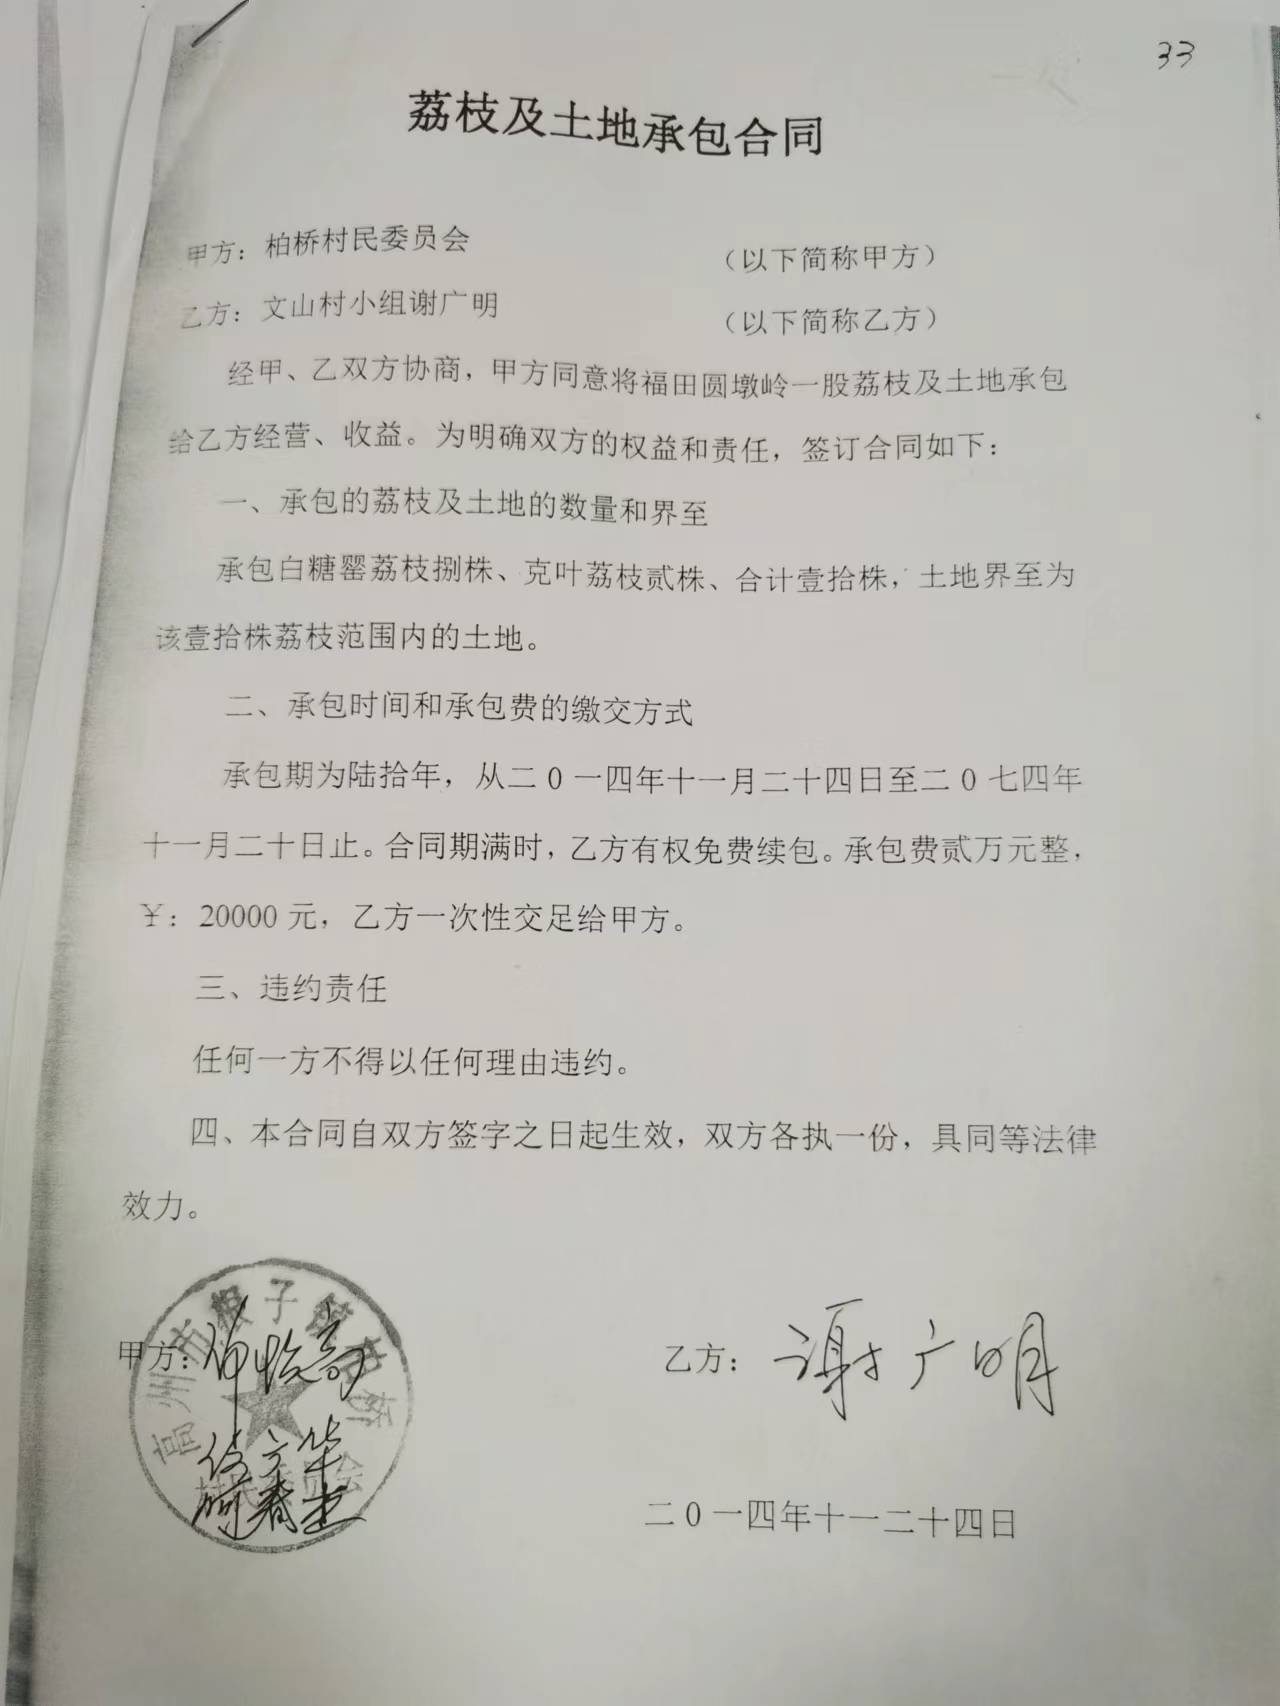 33
荔枝及土地承包合同
甲方：柏桥村民委员会 （以下简称甲方）
乙方：文山村小组谢广明 （以下简称乙方）
经甲、乙双方协商，甲方同意将福田圆墩岭一股荔枝及土地承包
给乙方经营、收益。为明确双方的权益和责任，签订合同如下：
一、承包的荔枝及土地的数量和界至
承包白糖罂荔枝捌株、克叶荔枝贰株、合计壹拾株，土地界至为
该壹拾株荔枝范围内的土地。
二、承包时间和承包费的缴交方式
承包期为陆拾年，从二0一四年十一月二十四日至二0七四年
十一月二十日止。合同期满时，乙方有权免费续包。承包费贰万元整，
￥：20000元，乙方一次性交足给甲方。
三、违约责任
任何一方不得以任何理由违约。
四、本合同自双方签字之日起生效，双方各执一份，具同等法律
效力。
高州市根子镇柏桥
村民委员会
甲方： 乙方：谢广明
二0一四年十一二十四日